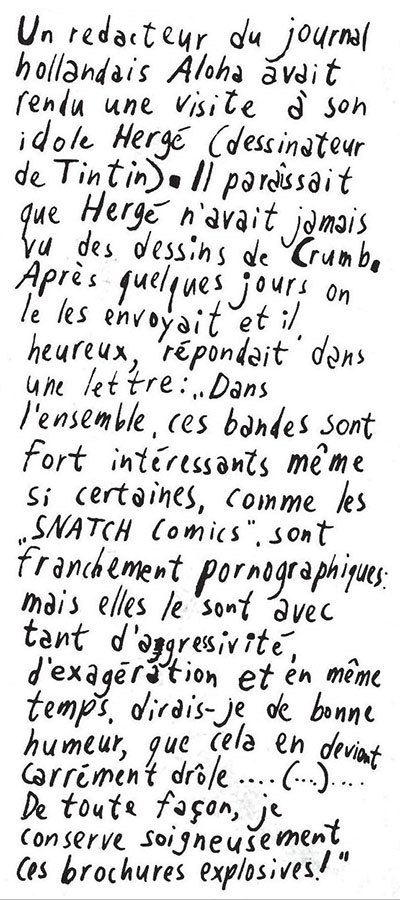 Un redacteur du journal
hollandais Aloha avait
rendu une visite à son
idole Hergé (dessinateur
de Tintin). Il paraîssait
que Hergé n'avait jamais
vu des dessins de Crumb.
Après quelques jours on
le les envoyait et il,
heureux, répondait dans
une lettre: „Dans
l'ensemble, ces bandes sont
fort intéressants même
si certaines, comme les
„SNATCH Comics", sont
franchement pornographiques:
mais elles le sont avec
tant d'aggressivité,
d'exagération et en même
temps, dirais-je de bonne
humeur, que cela en devient
carrément drôle ....(...)....
De toute façon, je
conserve soigneusement
ces brochures explosives!"